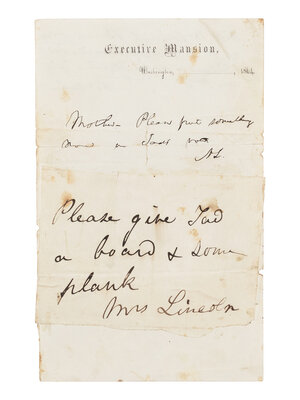 Executive Mansion,
Washington, , 1864.
Mother Please put something
AL
Please give Tad
a board & some
plank
Mrs Lincoln